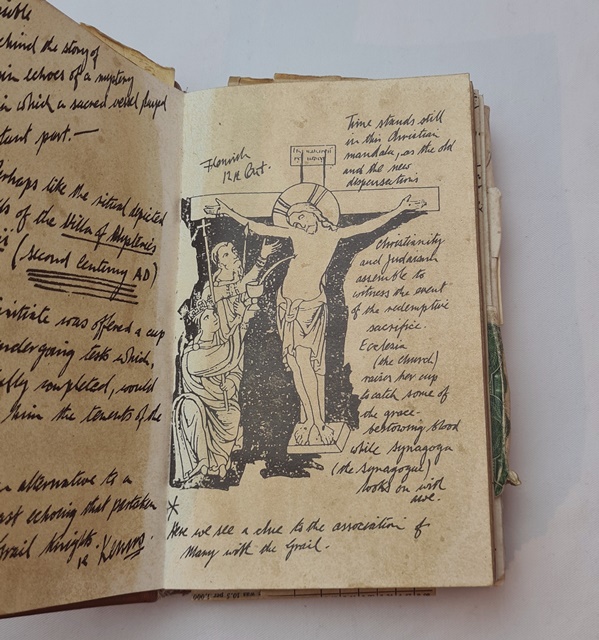 sible
ehind the story of
in echoes of a mystery
in which a sacred vessel played
tant part. —
erhaps like the ritual depicted
of the Villa of Mysteries
(second century AD)
initiate was offered a cup
ndergoing tests which,
fully completed, would
him the tenents of the
an alternative to a
ast echoing that partaken
Grail Knights
Flemish
12th Cent.
Time stands still
in this Christian
mandala, as the old
and the new
dispensations
Christianity
and Judaism
assemble to
witness the event
of the redemptive
sacrifice.
Ecclesia
(the church)
raises her cup
to catch some of
the grace-
bestowing blood
while Synagoga
(the synagogue)
looks on with
awe.
*
Here we see a clue to the association of
Mary with the Grail.